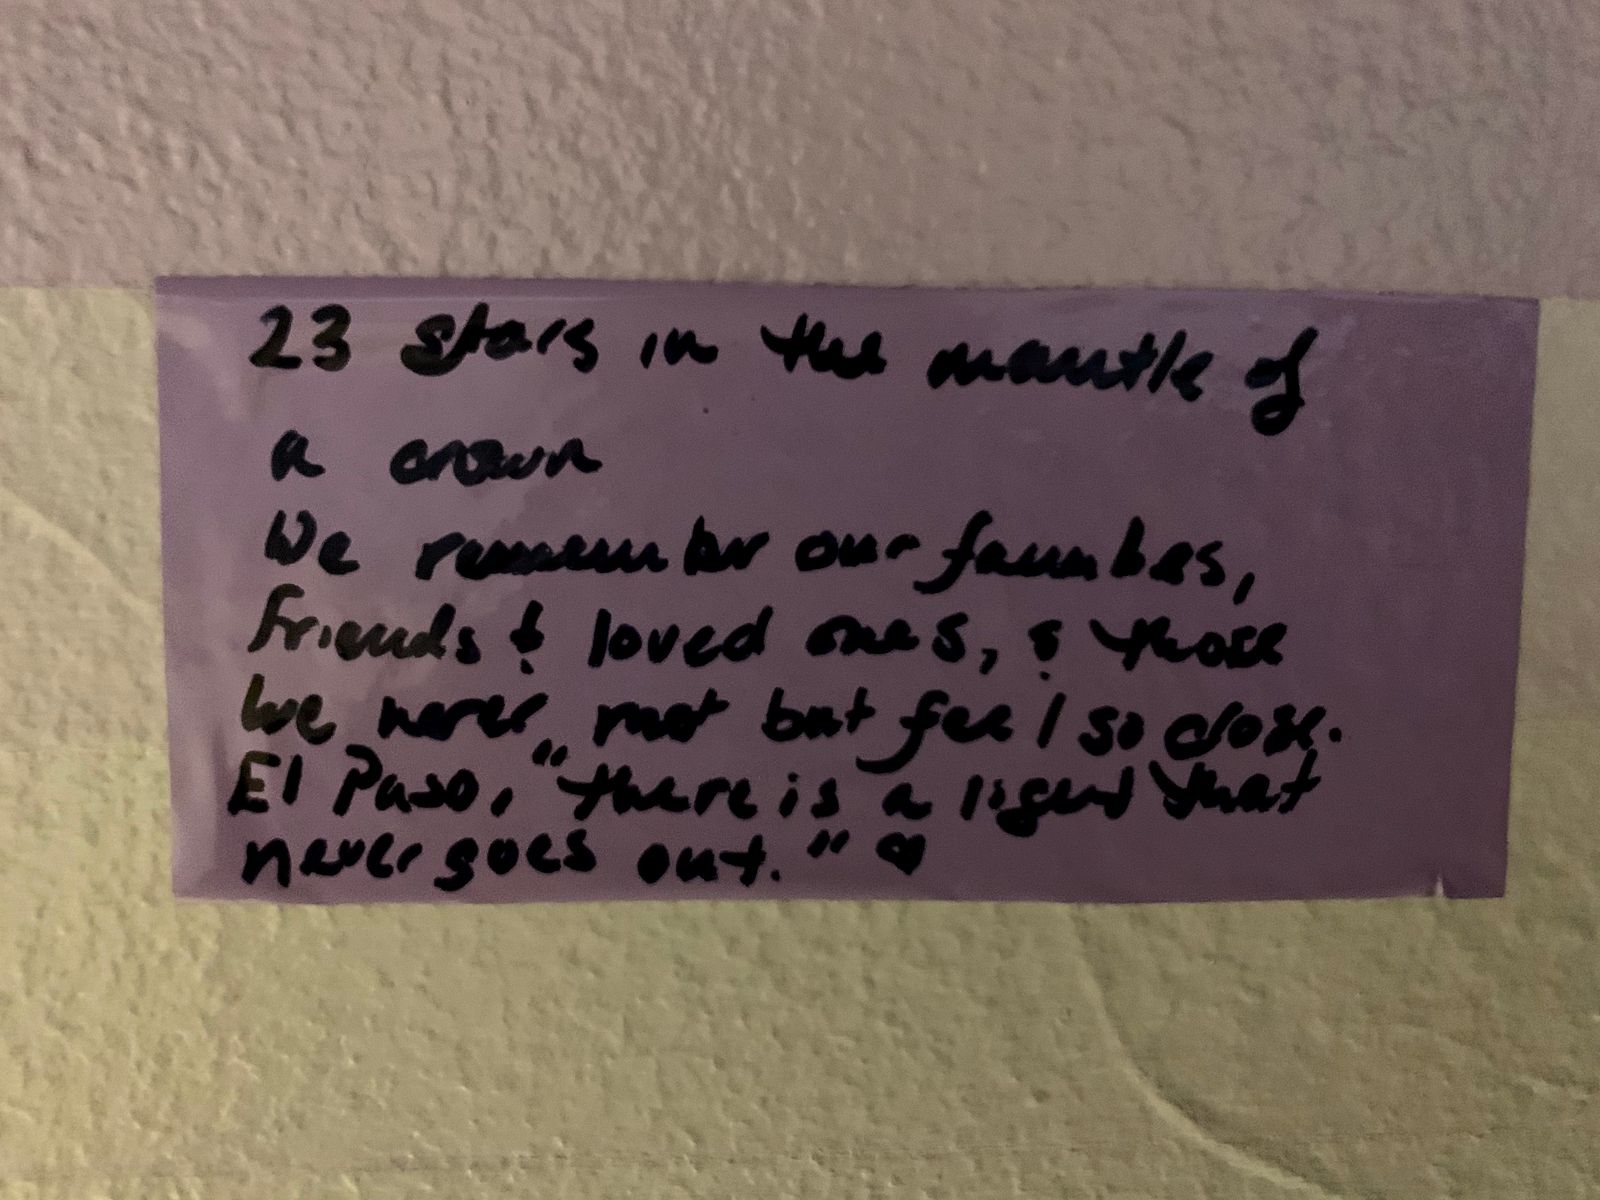 23 stars in the mantle of
a crown
We remember our families,
friends & loved ones, & those
we never met but feel so close.
El Paso, "there is a light that
never goes out." ♡